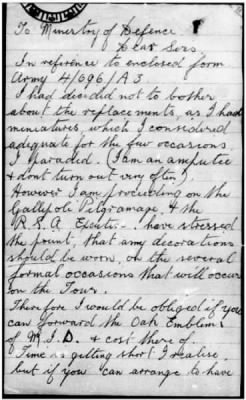 To Minestry of Defence.
Dear Sirs,
In reference to enclosed form
Army 4/696/A3
I had decided not to bother
about the replacements, as I had
miniatures, which I considered
adequate for the few occasions
I paraded. (I am an amputee
& dont turn out very often).
However I am proceeding on the
Gallipoli Pilgramage, & the
R.S.A have stressed
the point, that any decorations
should be worn, on the several
formal occasions that will occur
on the Tour.
Therefore I would be obliged if you
can forward the Oak Emblems
of M.I.D. & cost there of.
Time is getting short I realise,
but if you can arrange to have